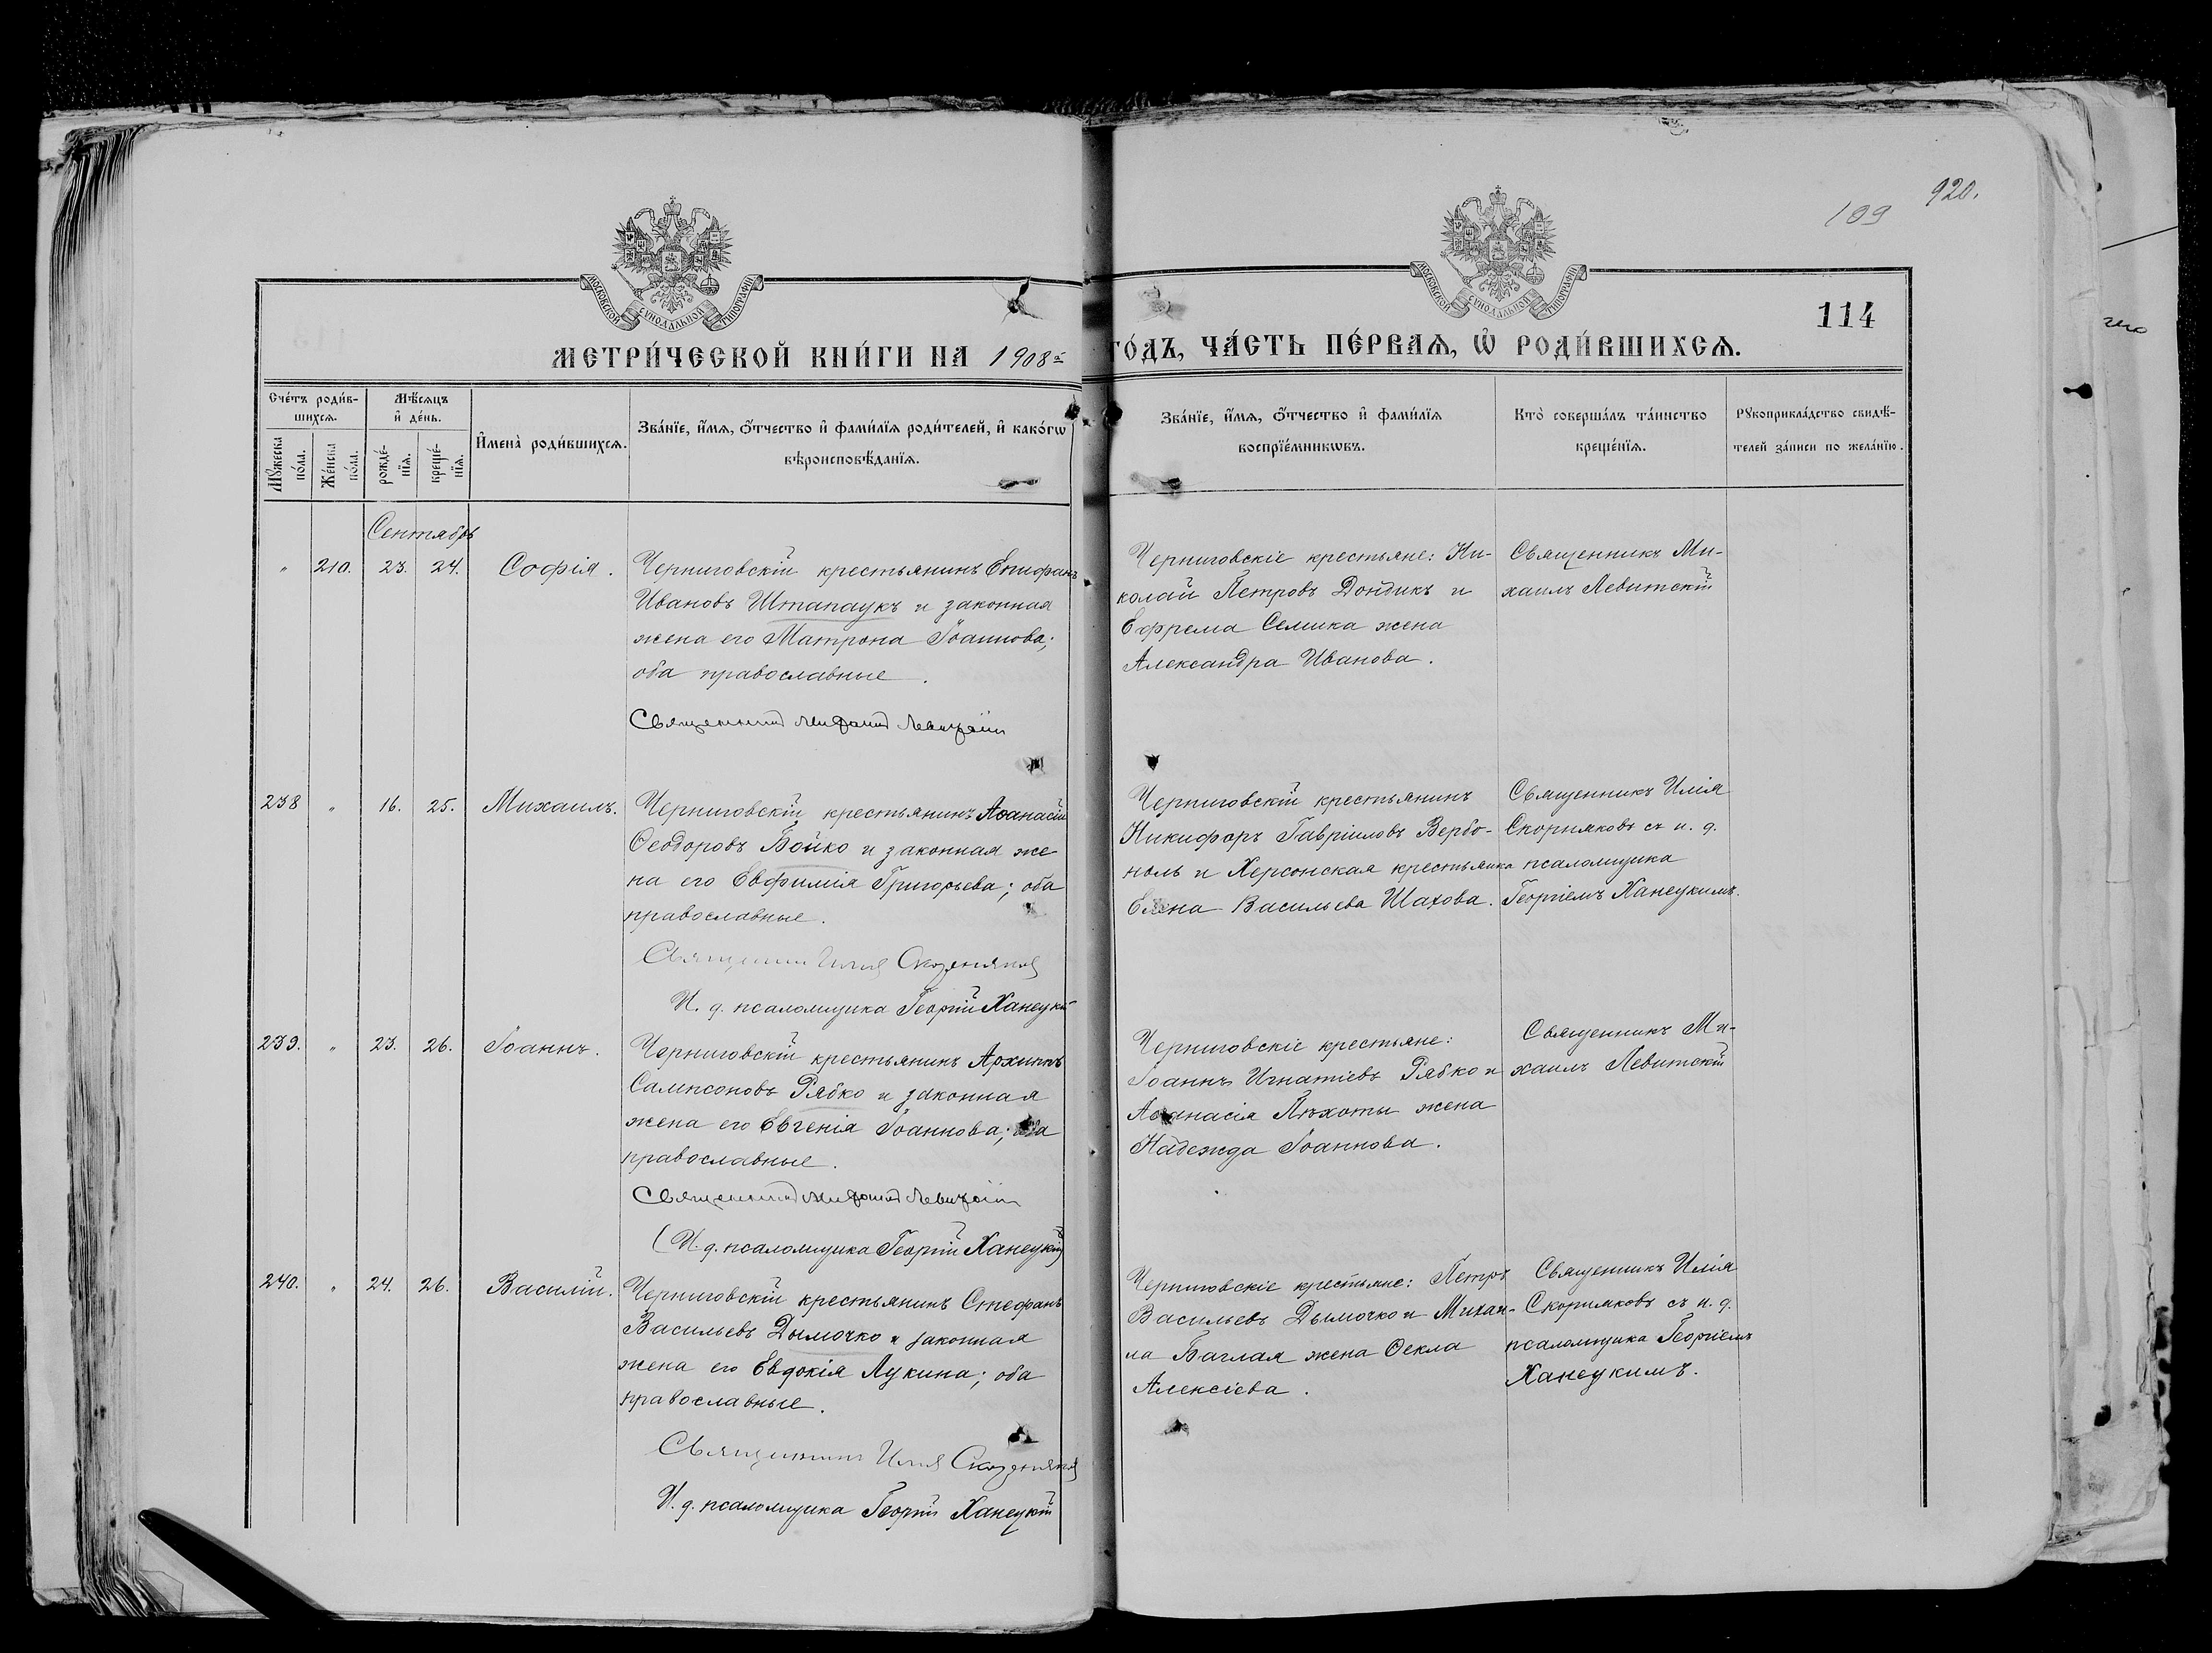 920.
109
МОСКОВСКОЙ СѴНОДАЛЬНОЙ ТИПОГРАФІИ
МОСКОВСКОЙ СѴНОДАЛЬНОЙ ТИПОГРАФІИ
114
МЕТРИ́ЧЕСКОЙ КНИ́ГИ НА 1908й
ГО́ДЪ, ЧА́СТЬ ПЕ́РВАѦ, Ѡ҆ РОДИ́ВШИХСѦ.
Сче́тъ роди́в-
шихсѧ.
Мꙋ́жеска
по́ла.
Же́нска
по́ла.
Мѣ́сѧцъ
и҆ де́нь.
рожде́-
нїѧ.
креще́-
нїѧ.
И҆мена̀ роди́вшихсѧ.
Зва́нїе, и҆́мѧ, ѻ҆́тчество и҆ фами́лїѧ роди́телей, и҆ како́гѡ
вѣроисповѣ́данїѧ.
Зва́нїе, и҆́мѧ, ѻ҆́тчество и҆ фами́лїѧ
воспрїе́мникѡвъ.
Кто̀ соверша́лъ та́инство
креще́нїѧ.
Рꙋкоприкла́дство свидѣ́-
телей за́писи по жела́нїю.
Сентябрь
" 210. 23. 24. Софія.
Черниговскій крестьянинъ Епифанъ
Ивановъ Штапаукъ и законная
жена его Матрона Іоаннова;
оба православные.
Священникъ Михаилъ Левитскій
Черниговскіе крестьяне: Ни-
колай Петровъ Дондикъ и
Ефрема Семика жена
Александра Иванова.
Священникъ Ми-
хаилъ Левитскій
238 " 16. 25. Михаилъ.
Черниговскій крестьянинъ Аѳанасій
Ѳеодоровъ Бойко и законная же
на его Евфимія Григорьева; оба
православные.
Священникъ Илія Скорняковъ
И. д. псаломщика Георгій Ханецкій
Черниговскій крестьянинъ
Никифоръ Гавріиловъ Вербо-
ноль и Херсонская крестьянка
Елена Васильева Шахова.
Священникъ Илія
Скорняковъ съ и. д.
псаломщика
Георгіемъ Ханецкимъ.
239. " 23. 26. Іоаннъ.
Черниговскій крестьянинъ Архипъ
Сампсоновъ Рябко и законная
жена его Евгенія Іоаннова; оба
православные.
Священникъ Михаилъ Левитскій
(И. д. псаломщика Георгій Ханецкій)
Черниговскіе крестьяне:
Іоаннъ Игнатіевъ Рябко и
Аѳанасія Пѣхоты жена
Надежда Іоаннова.
Священникъ Ми-
хаилъ Левитскій
240. " 24. 26. Василій.
Черниговскій крестьянинъ Стефанъ
Васильевъ Дымочко и законная
жена его Евдокія Лукина; оба
православные.
Священникъ Илія Скорняковъ
И. д. псаломщика Георгій Ханецкій
Черниговскіе крестьяне: Петръ
Васильевъ Дымочко и Михаи-
ла Баглая жена Ѳекла
Алексіева.
Священникъ Илія
Скорняковъ съ и. д.
псаломщика Георгіемъ
Ханецкимъ.